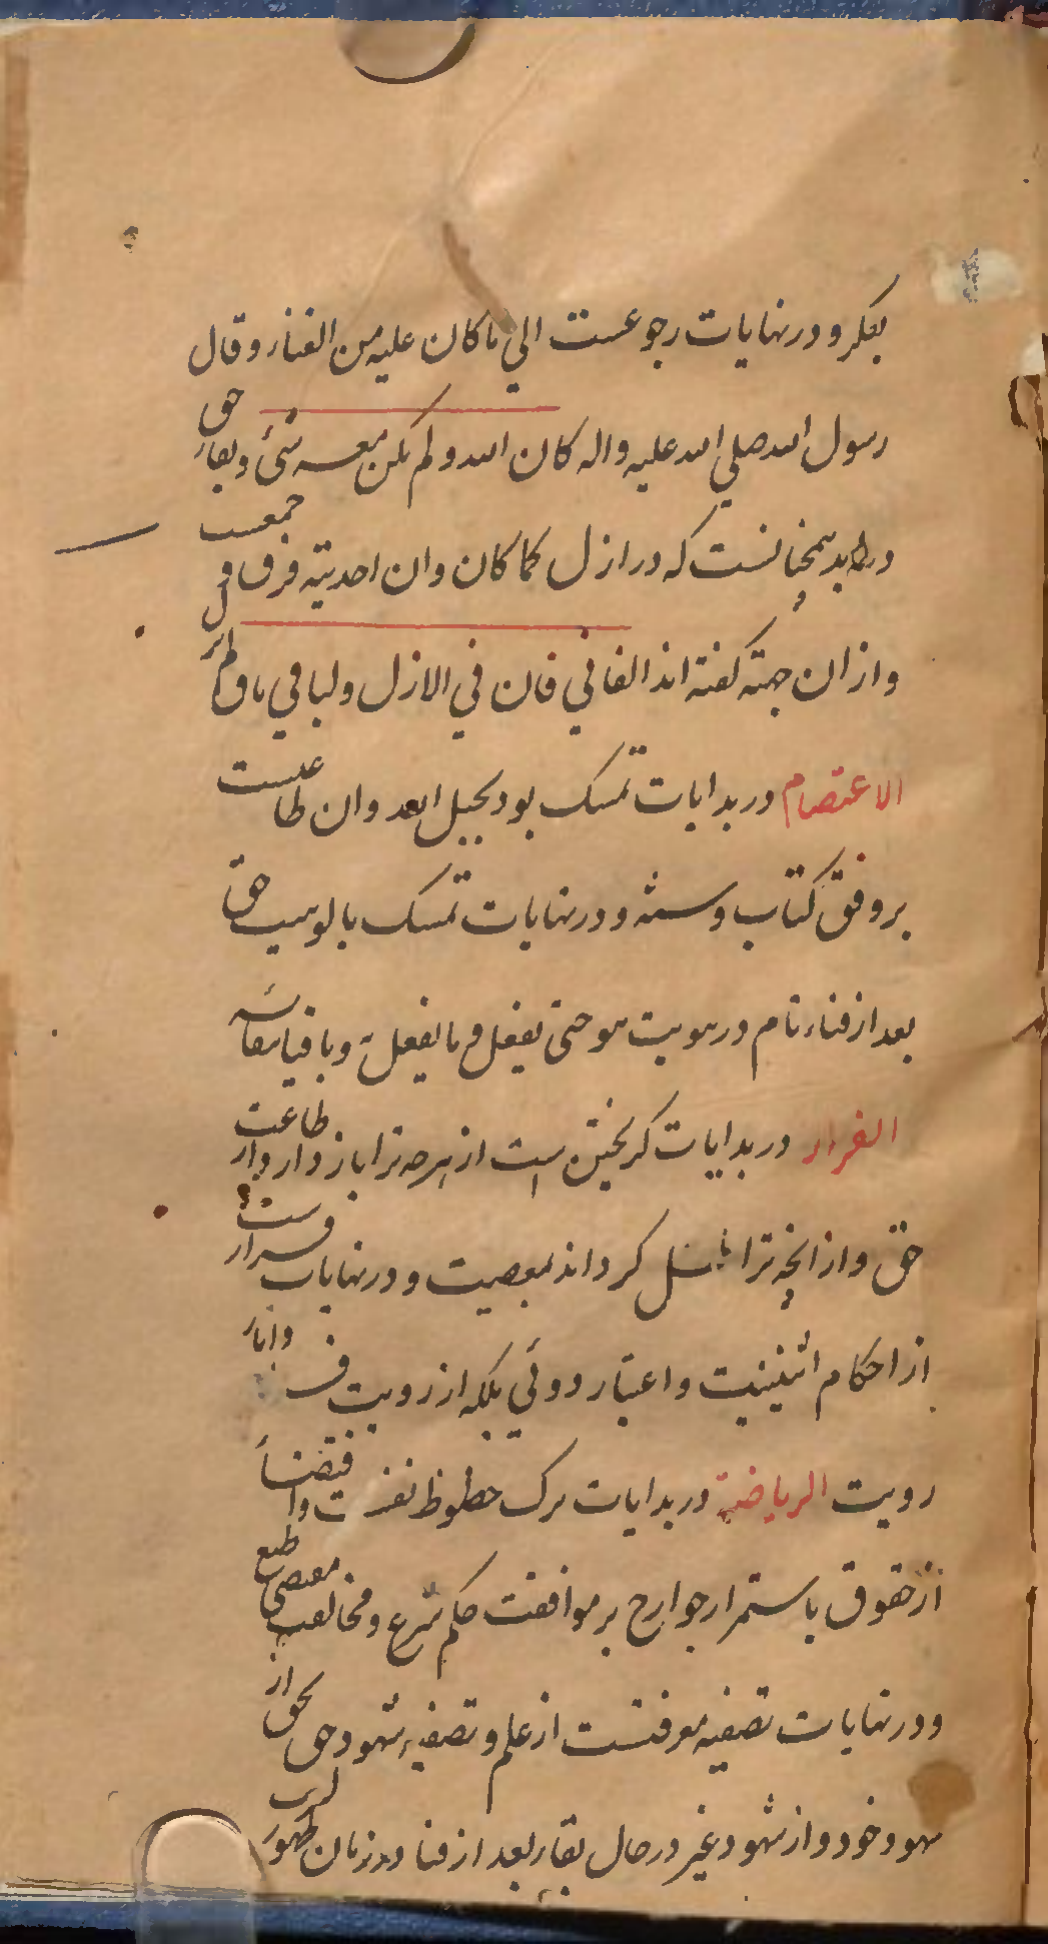 بفکر و در نهایات رجوعست الی ما کان علیه من الفناء و قال
رسول الله صلی الله علیه و اله کان الله و لم یکن معه شئ و بقاء حق
در ابد همچنانست که در ازل کما کان و ان احدیته فرق و جمعست
و ازان جهته کفته اند الفانی فان فی الازل و لباقی باق لم یزل
الاعتصام در بدایات تمسک بود بحبل الله و ان طاعتست
بر وفق کتاب و سنته و در نهایات تمسک بالوهیت حق
بعد از فناء تام در هویت هو حتی یفعل ما یفعل به و باقیا ببقائه
الفرار در بدایات کریختن است از هرچه ترا باز دارد از طاعت
حق و ازانچه ترا مایل کرداند بمعصیت و در نهایات فرارست
از احکام اثنینیت و اعتبار دوئی بلکه از رویت و اثار
رویت الریاضة در بدایات ترک حظوظ نفس است و اقتضاء
از حقوق باستمرار جوارح بر موافقت حکم شرع و مخالفت مقتضی طبع
و در نهایات تصفیه معرفتست از علم و تصفیه شهود حق بحق از
شهود خود و از شهود غیر در حال بقاء بعد از فنا و در زمان ظهور